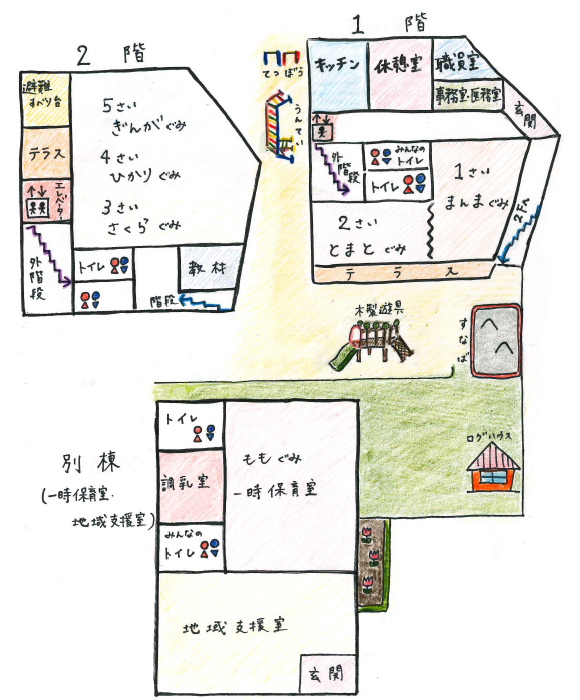 2 階
避難
すべり台
テラス
エレベーター
外階段
5さい
ぎんがぐみ
4さい
ひかりぐみ
3さい
さくらぐみ
トイレ
教材
階段
てつぼう
うんてい
1 階
キッチン
休憩室
職員室
事務室・医務室
玄関
外階段
みんなの
トイレ
トイレ
1さい
まんまぐみ
2さい
とまとぐみ
2Fへ
テラス
木製遊具
すなば
ログハウス
別棟
(一時保育室・
地域支援室)
トイレ
調乳室
みんなの
トイレ
ももぐみ
一時保育室
地域支援室
玄関